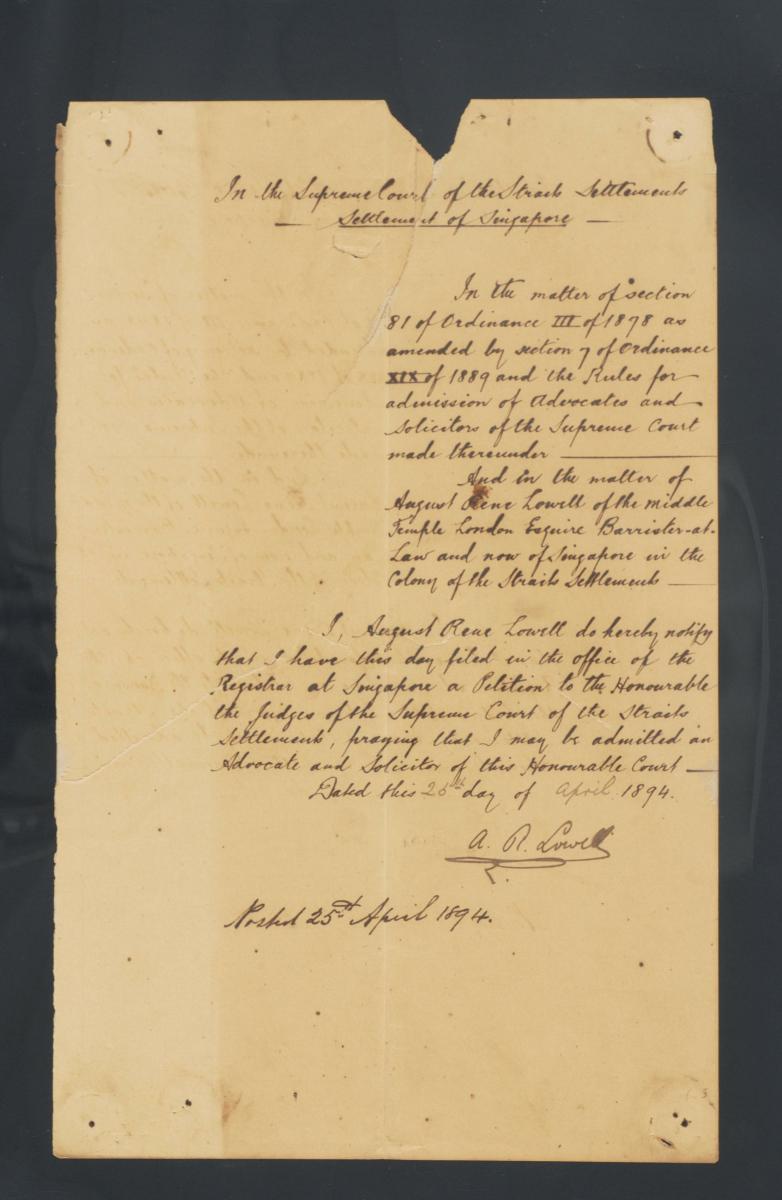 In the Supreme Court of the Straits Settlements
— Settlement of Singapore —
In the matter of section
81 of Ordinance III of 1878 as
amended by section 7 of Ordinance
XIX of 1889 and the Rules for
admission of Advocates and
Solicitors of the Supreme Court
made thereunder —
And in the matter of
August Rene Lowell of the Middle
Temple London Esquire Barrister-at-
Law and now of Singapore in the
Colony of the Straits Settlements —
I, August Rene Lowell do hereby notify
that I have this day filed in the office of the
Registrar at Singapore a Petition to the Honourable
the Judges of the Supreme Court of the Straits
Settlements, praying that I may be admitted an
Advocate and Solicitor of this Honourable Court —
Dated this 25th day of April 1894.
A. R. Lowell
Posted 25th April 1894.